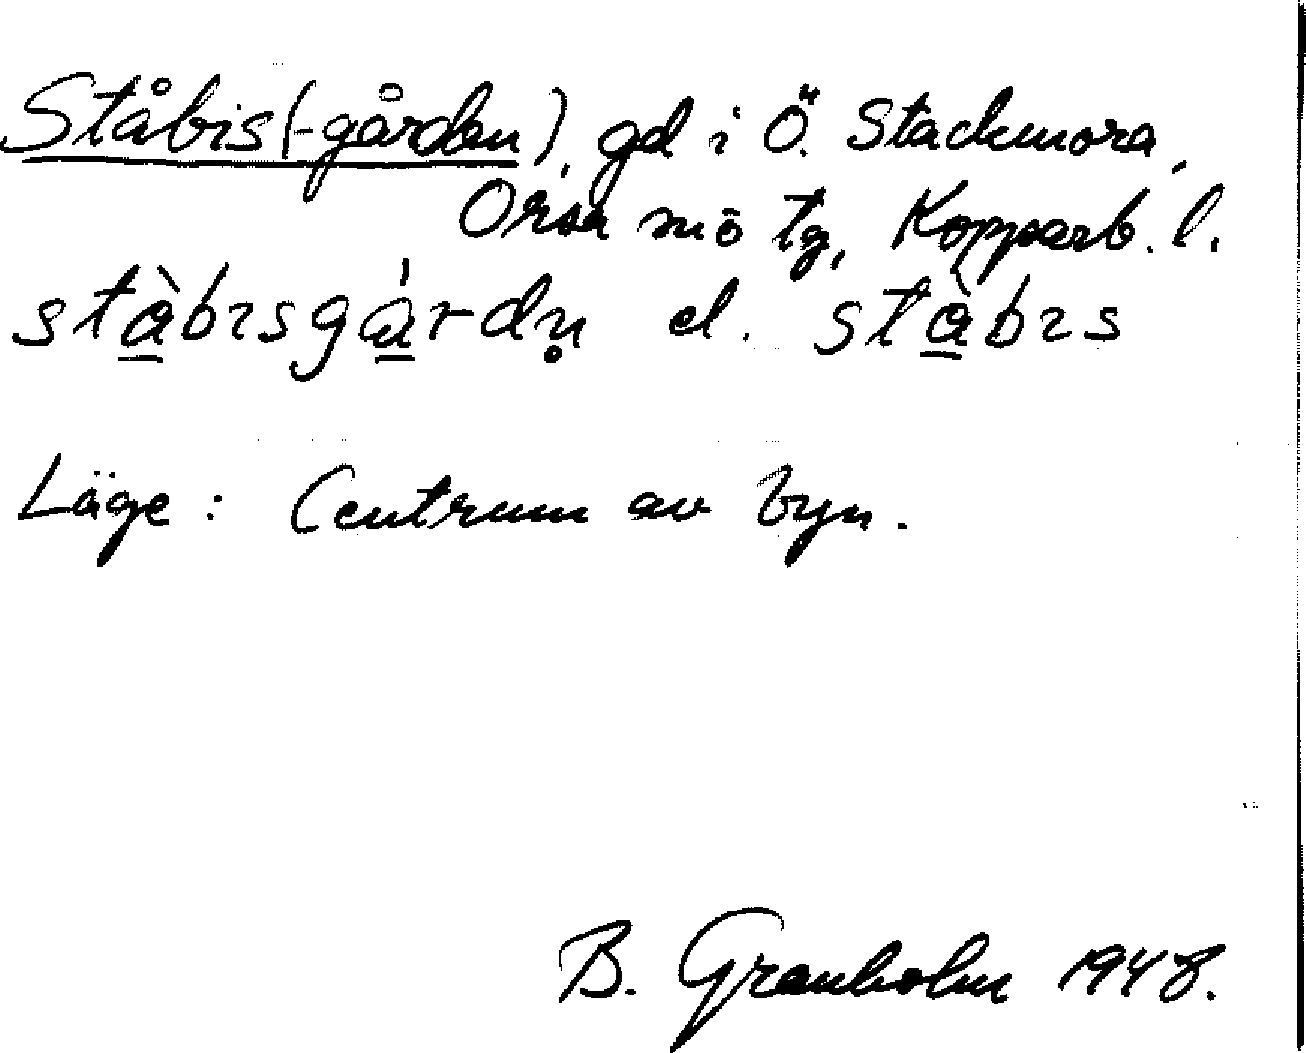 Ståbis(-gården), gd i Ö. Stackmora,
Orsa sn o tg, Kopparb. l.
stàbɪsgárdn̥ el. stàbɪs
Läge: Centrum av byn.
B. Granholm 1948.